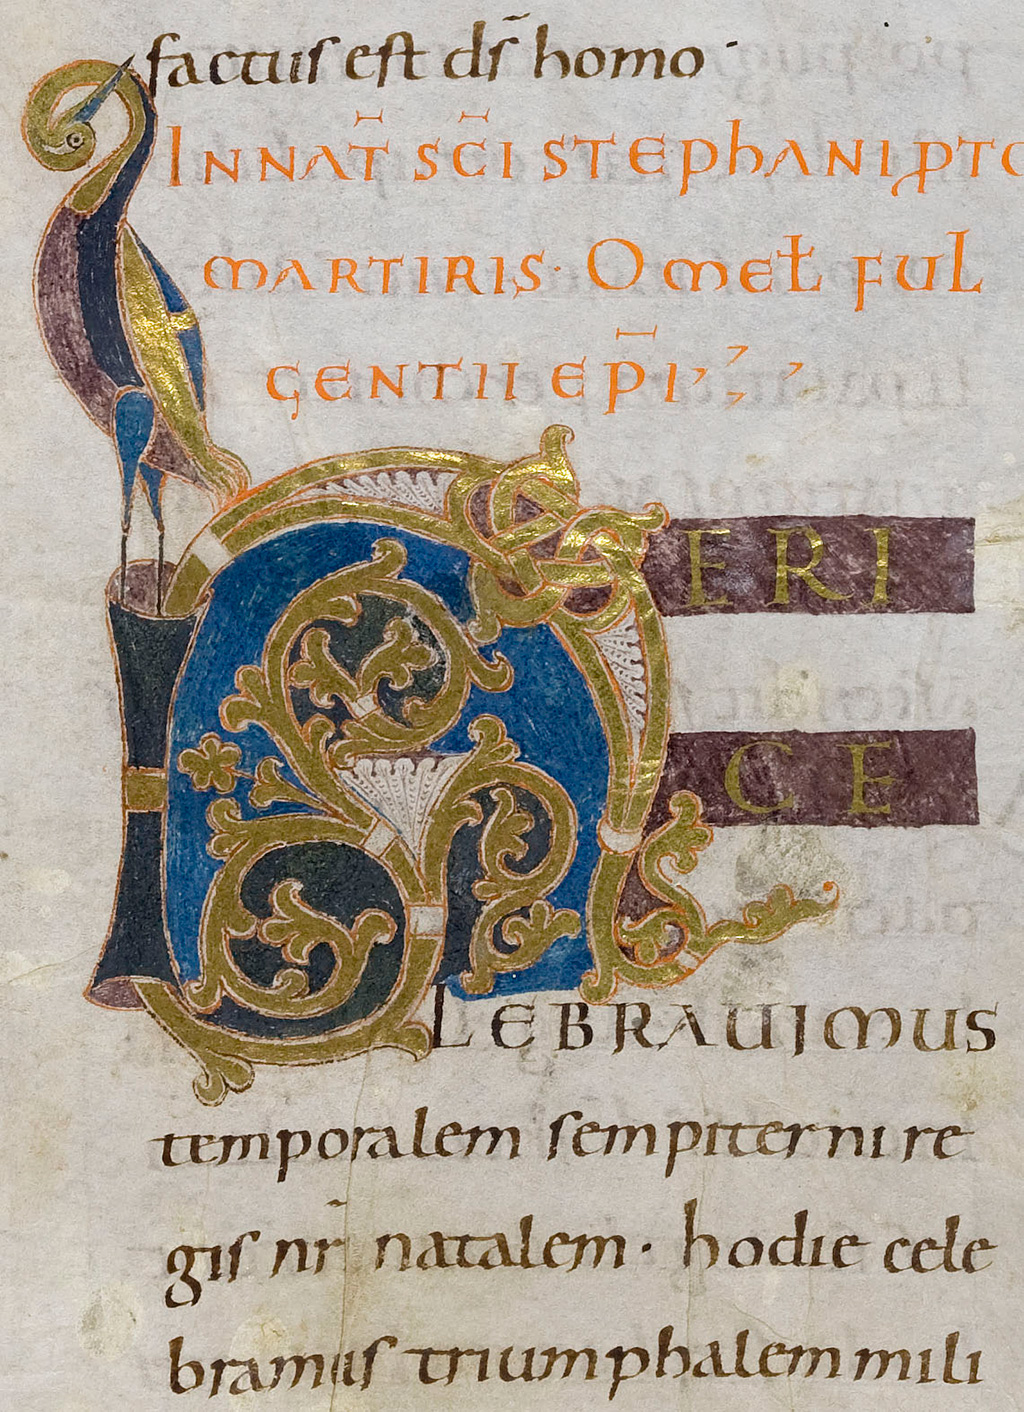 factus est ds̄ homo
INNAT̄ SC̄I STEPHANI PTO
MARTIRIS· OMEƚ FUL
GENTII EP̄I
HERI
CE
LEBRAUIMUS
temporalem sempiterni re
gis nr̄ natalem· hodie cele
bramus triumphalem mili